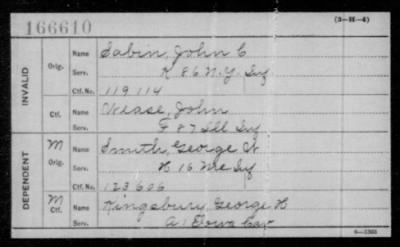 166610
(3-H-4)
INVALID
Orig.
Name Sabin, John C
Serv. K 86 N.Y. Inf
Ctf. No. 119114
Ctf.
Name Nease, John
Serv. F 87 Ill Inf
DEPENDENT
M Orig.
Name Smith, George W
Serv. H 16 Me Inf
Ctf. No. 123606
M Ctf.
Name Kingsbury, George H
Serv. A 1 Iowa Cav